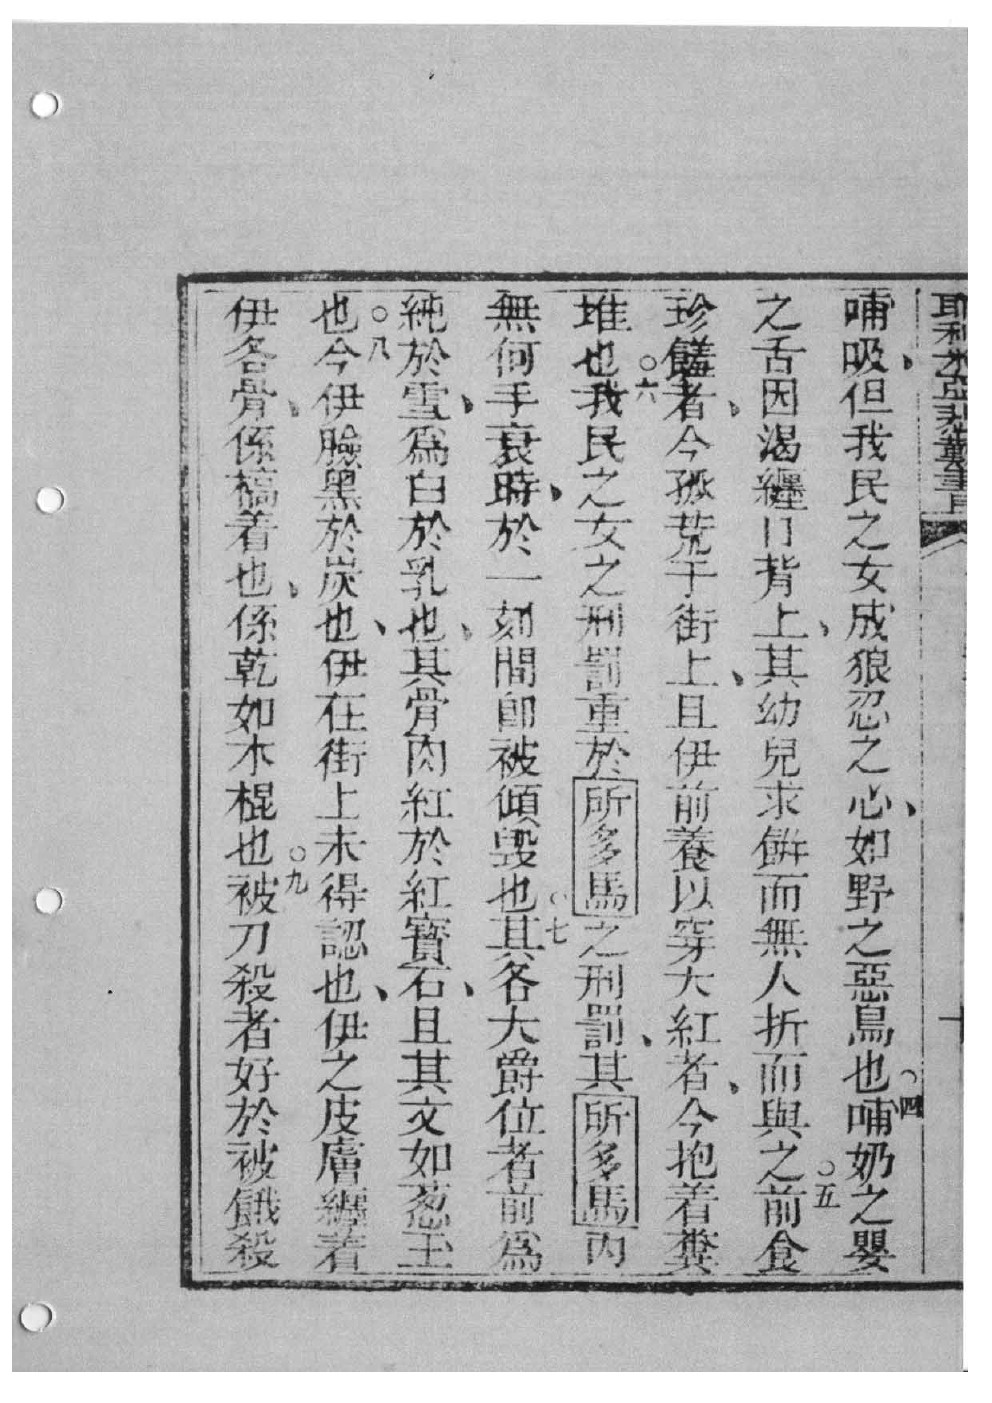 耶利米亞悲歎書
十
哺吸但我民之女成狼忍之心如野之惡鳥也○四哺奶之嬰
之舌因渴纏口揹上其幼兒求餅而無人折而與之○五前食
珍饈者今孤荒于街上且伊前養以穿大紅者今抱着糞
堆也○六我民之女之刑罰重於所多馬之刑罰其所多馬內
無何手衰時於一刻間即被傾毀也○七其各大爵位者前為
純於雪為白於乳也其骨肉紅於紅寶石且其文如葱玉
也○八今伊臉黑於炭也伊在街上未得認也伊之皮膚纏着
伊各骨係槁着也係乾如木棍也○九被刀殺者好於被餓殺